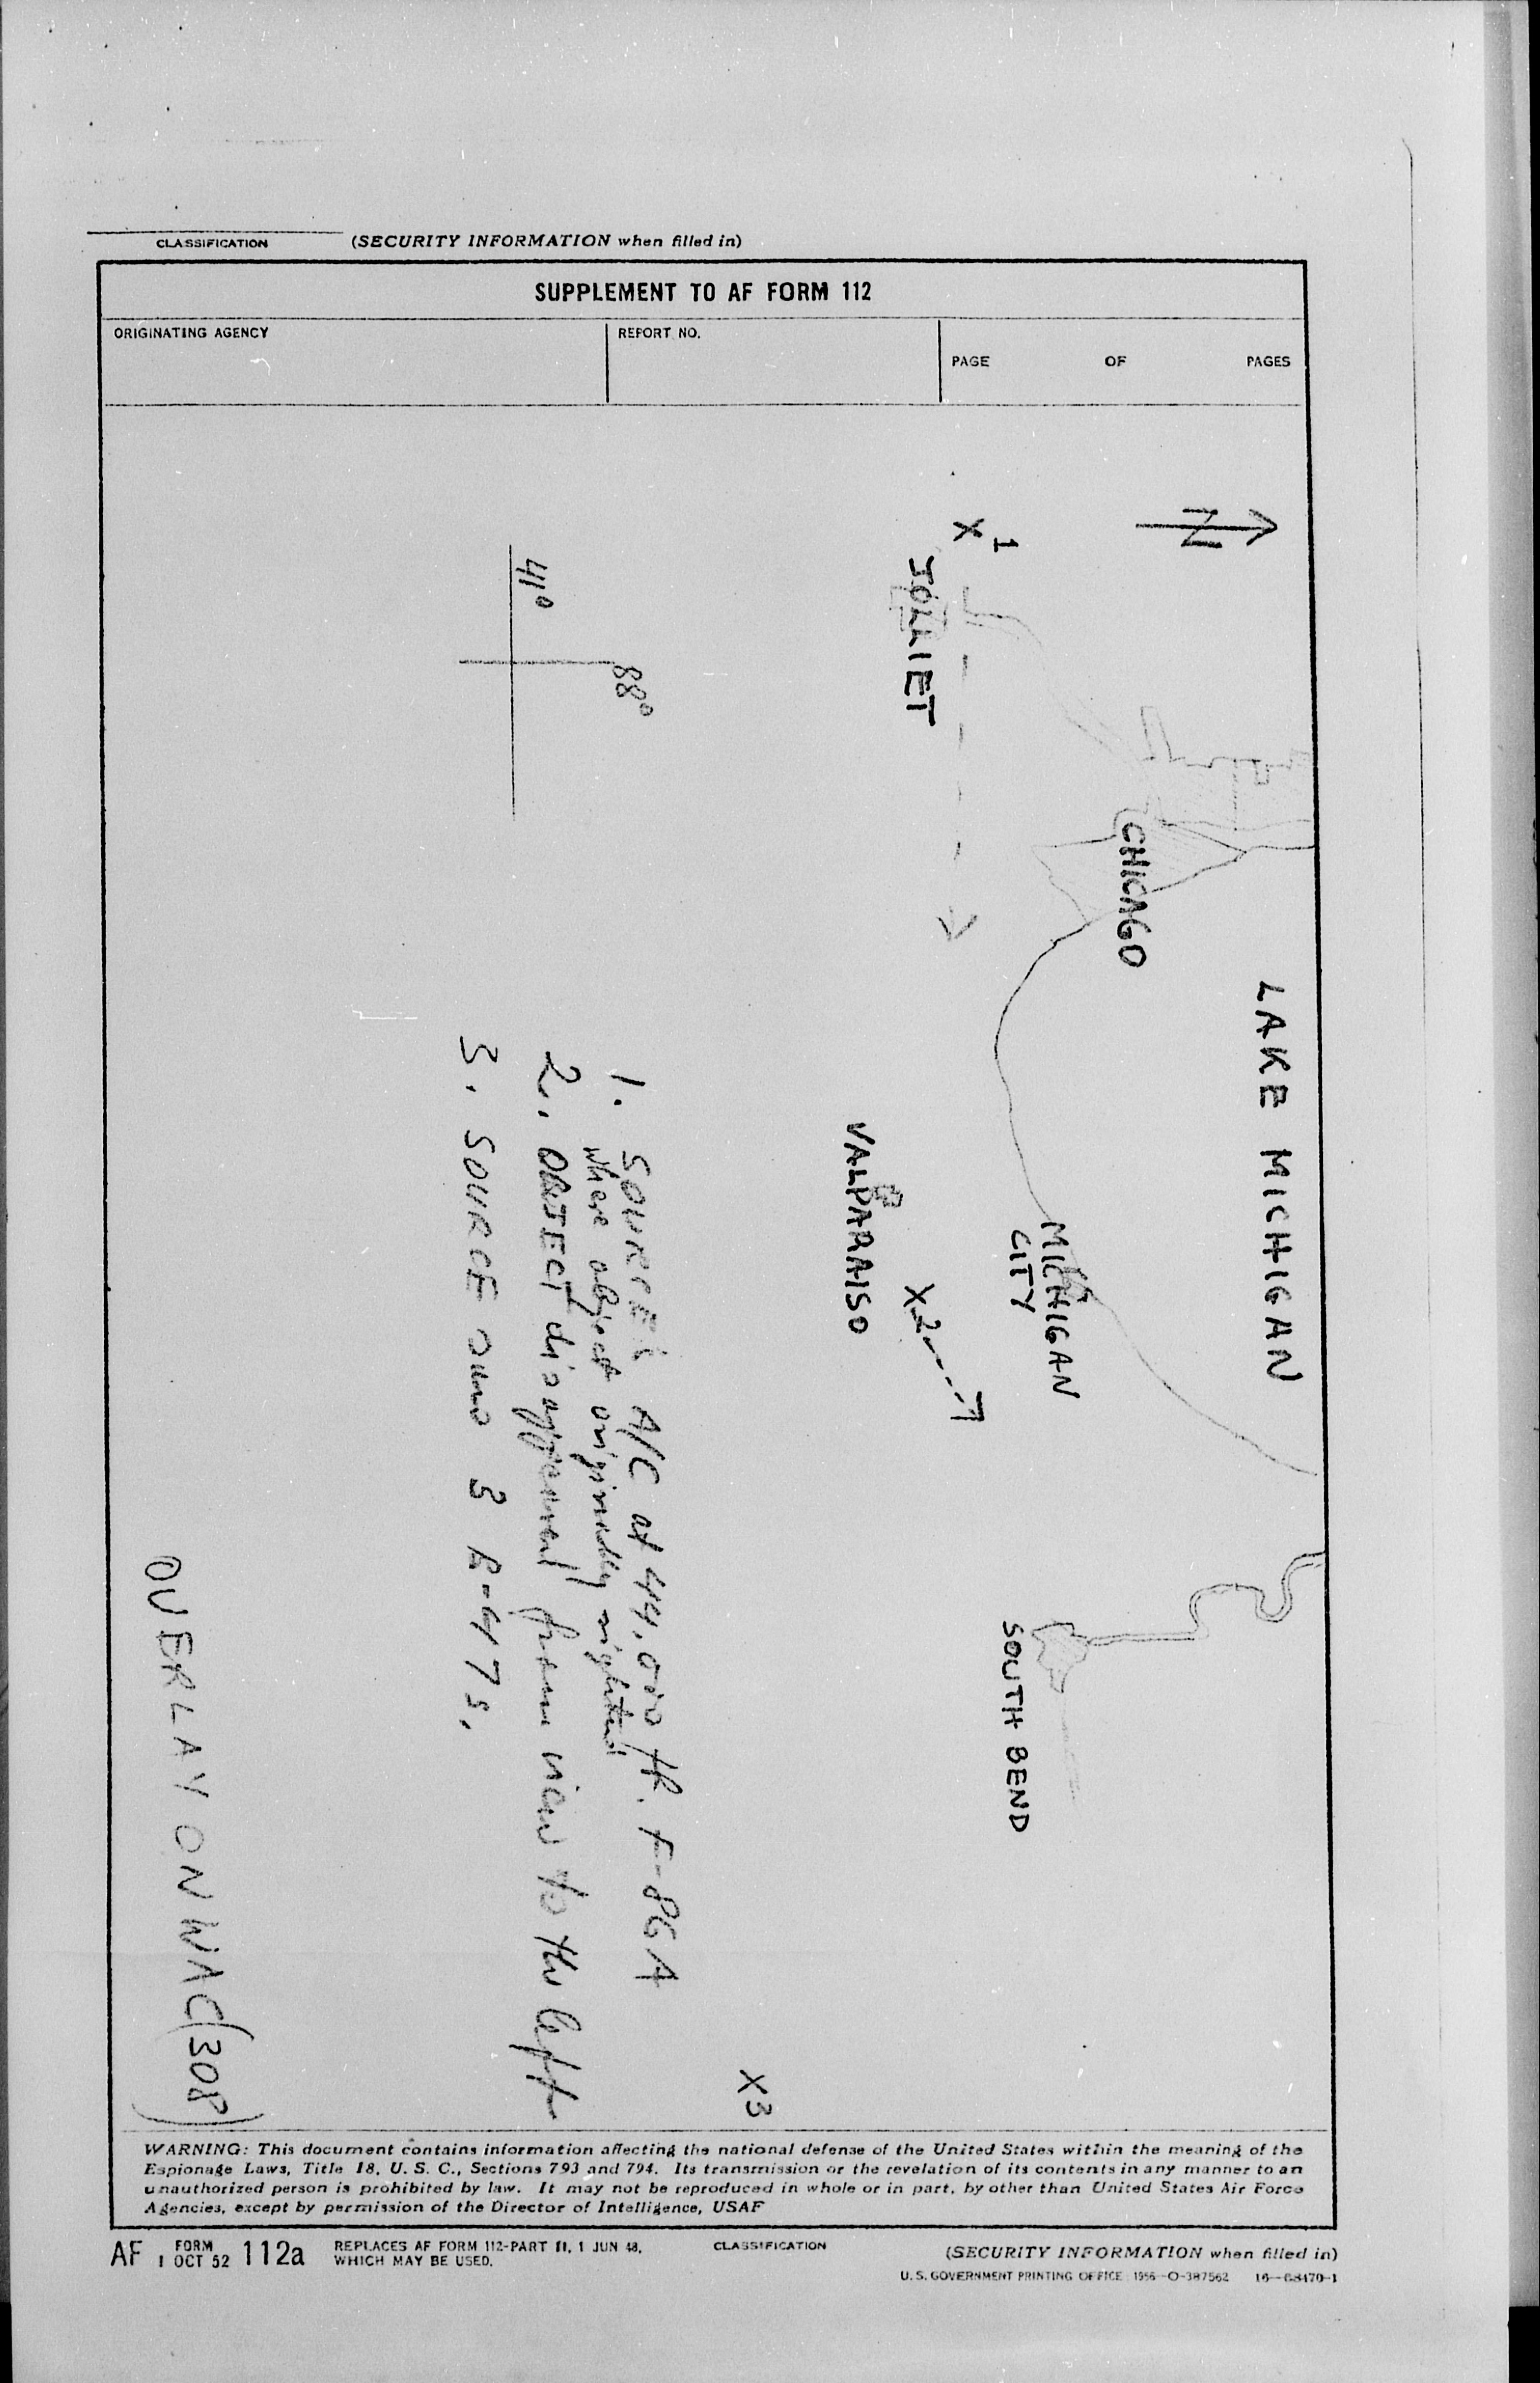 CLASSIFICATION
(SECURITY INFORMATION when filled in)
SUPPLEMENT TO AF FORM 112
ORIGINATING AGENCY
REPORT NO.
PAGE OF PAGES
N
X 1
JOLIET
CHICAGO
LAKE MICHIGAN
MICHIGAN
CITY
VALPARAISO
X2
SOUTH BEND
X3
41°
88°
1. SOURCE'S A/C at 44,000 ft. F-86A
where object originally sighted
2. OBJECT disappeared from view to the left
3. SOURCE saw 3 B-47s.
OVERLAY ON WAC (308)
WARNING: This document contains information affecting the national defense of the United States within the meaning of the
Espionage Laws, Title 18, U. S. C., Sections 793 and 794. Its transmission or the revelation of its contents in any manner to an
unauthorized person is prohibited by law. It may not be reproduced in whole or in part, by other than United States Air Force
Agencies, except by permission of the Director of Intelligence, USAF
AF FORM 1 OCT 52 112a
REPLACES AF FORM 112-PART II, 1 JUN 48,
WHICH MAY BE USED.
CLASSIFICATION
(SECURITY INFORMATION when filled in)
U. S. GOVERNMENT PRINTING OFFICE 1956—O-387562 16—68470-1